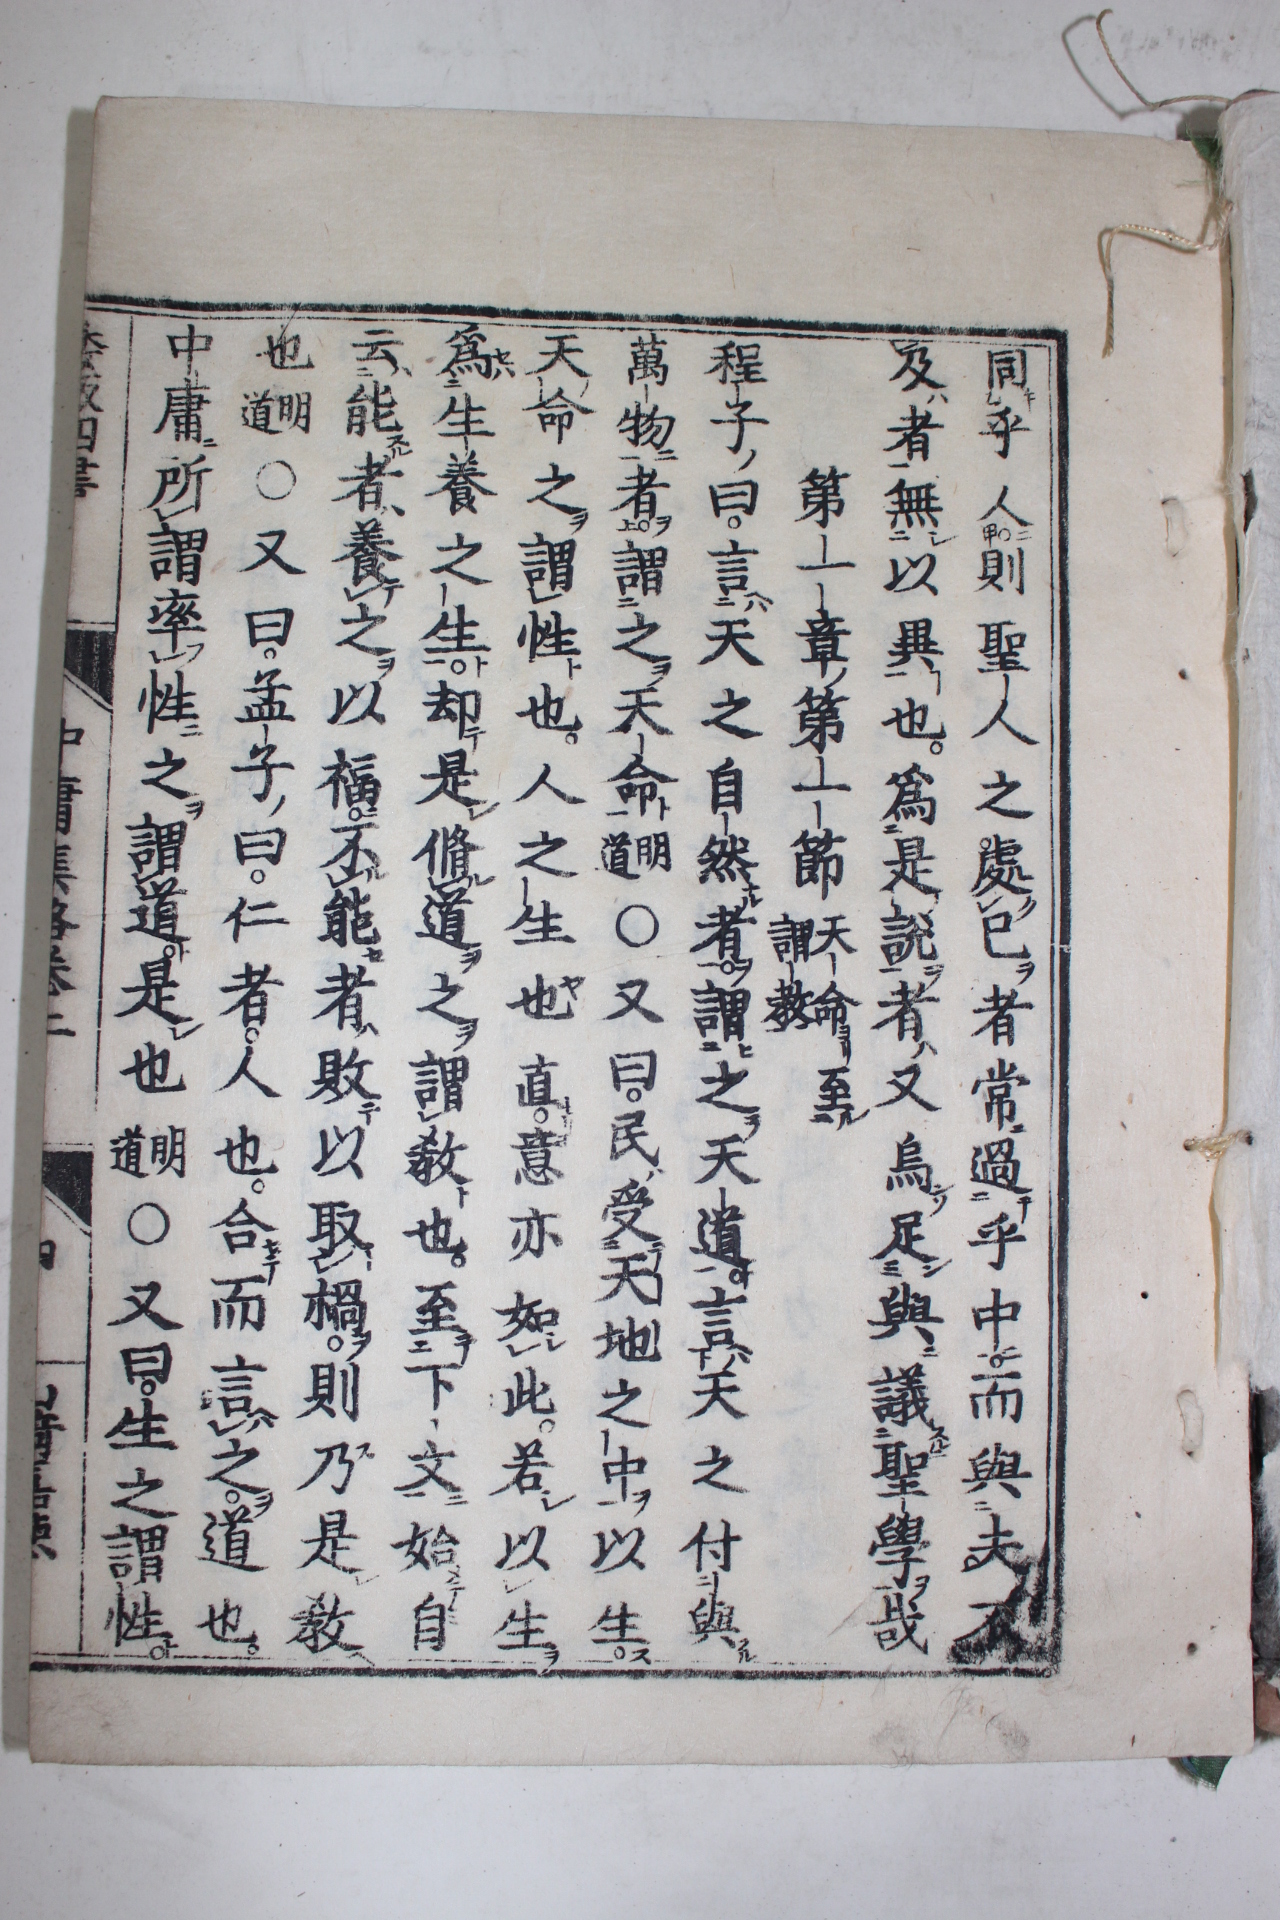 同乎人則聖人之處已者常過乎中而與夫不
及者無以異也。爲是說者又烏足與議聖學哉
第一章第一節 天命至謂敎
程子曰。言天之自然者。謂之天道。言天之付與
萬物者謂之天命 明道 ○又曰。民受天地之中以生。
天命之謂性也。人之生也直。意亦如此。若以生
爲生養之生。却是脩道之謂敎也。至下文始自
云能者養之以福。不能者敗以取禍。則乃是敎
也 明道 ○又曰。孟子曰。仁者。人也。合而言之。道也。
中庸所謂率性之謂道。是也 明道 ○又曰。生之謂性。
中庸集畧卷上
四